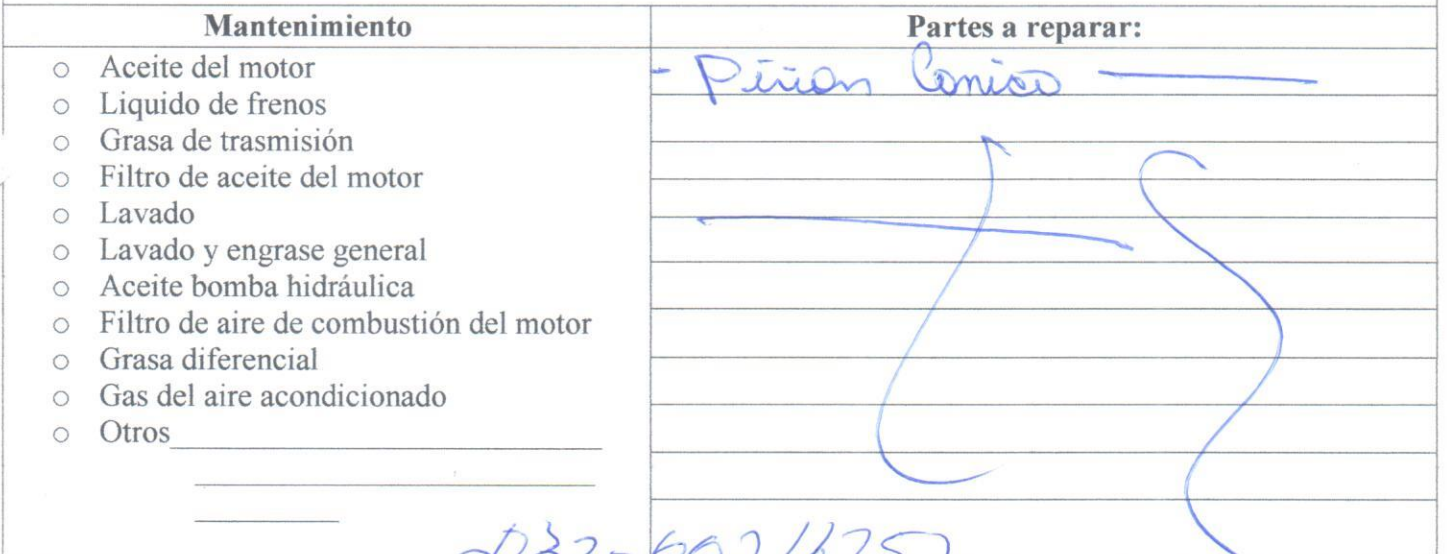 Mantenimiento
Partes a reparar:
○ Aceite del motor
○ Liquido de frenos
○ Grasa de trasmisión
○ Filtro de aceite del motor
○ Lavado
○ Lavado y engrase general
○ Aceite bomba hidráulica
○ Filtro de aire de combustión del motor
○ Grasa diferencial
○ Gas del aire acondicionado
○ Otros
- Piñon Conico